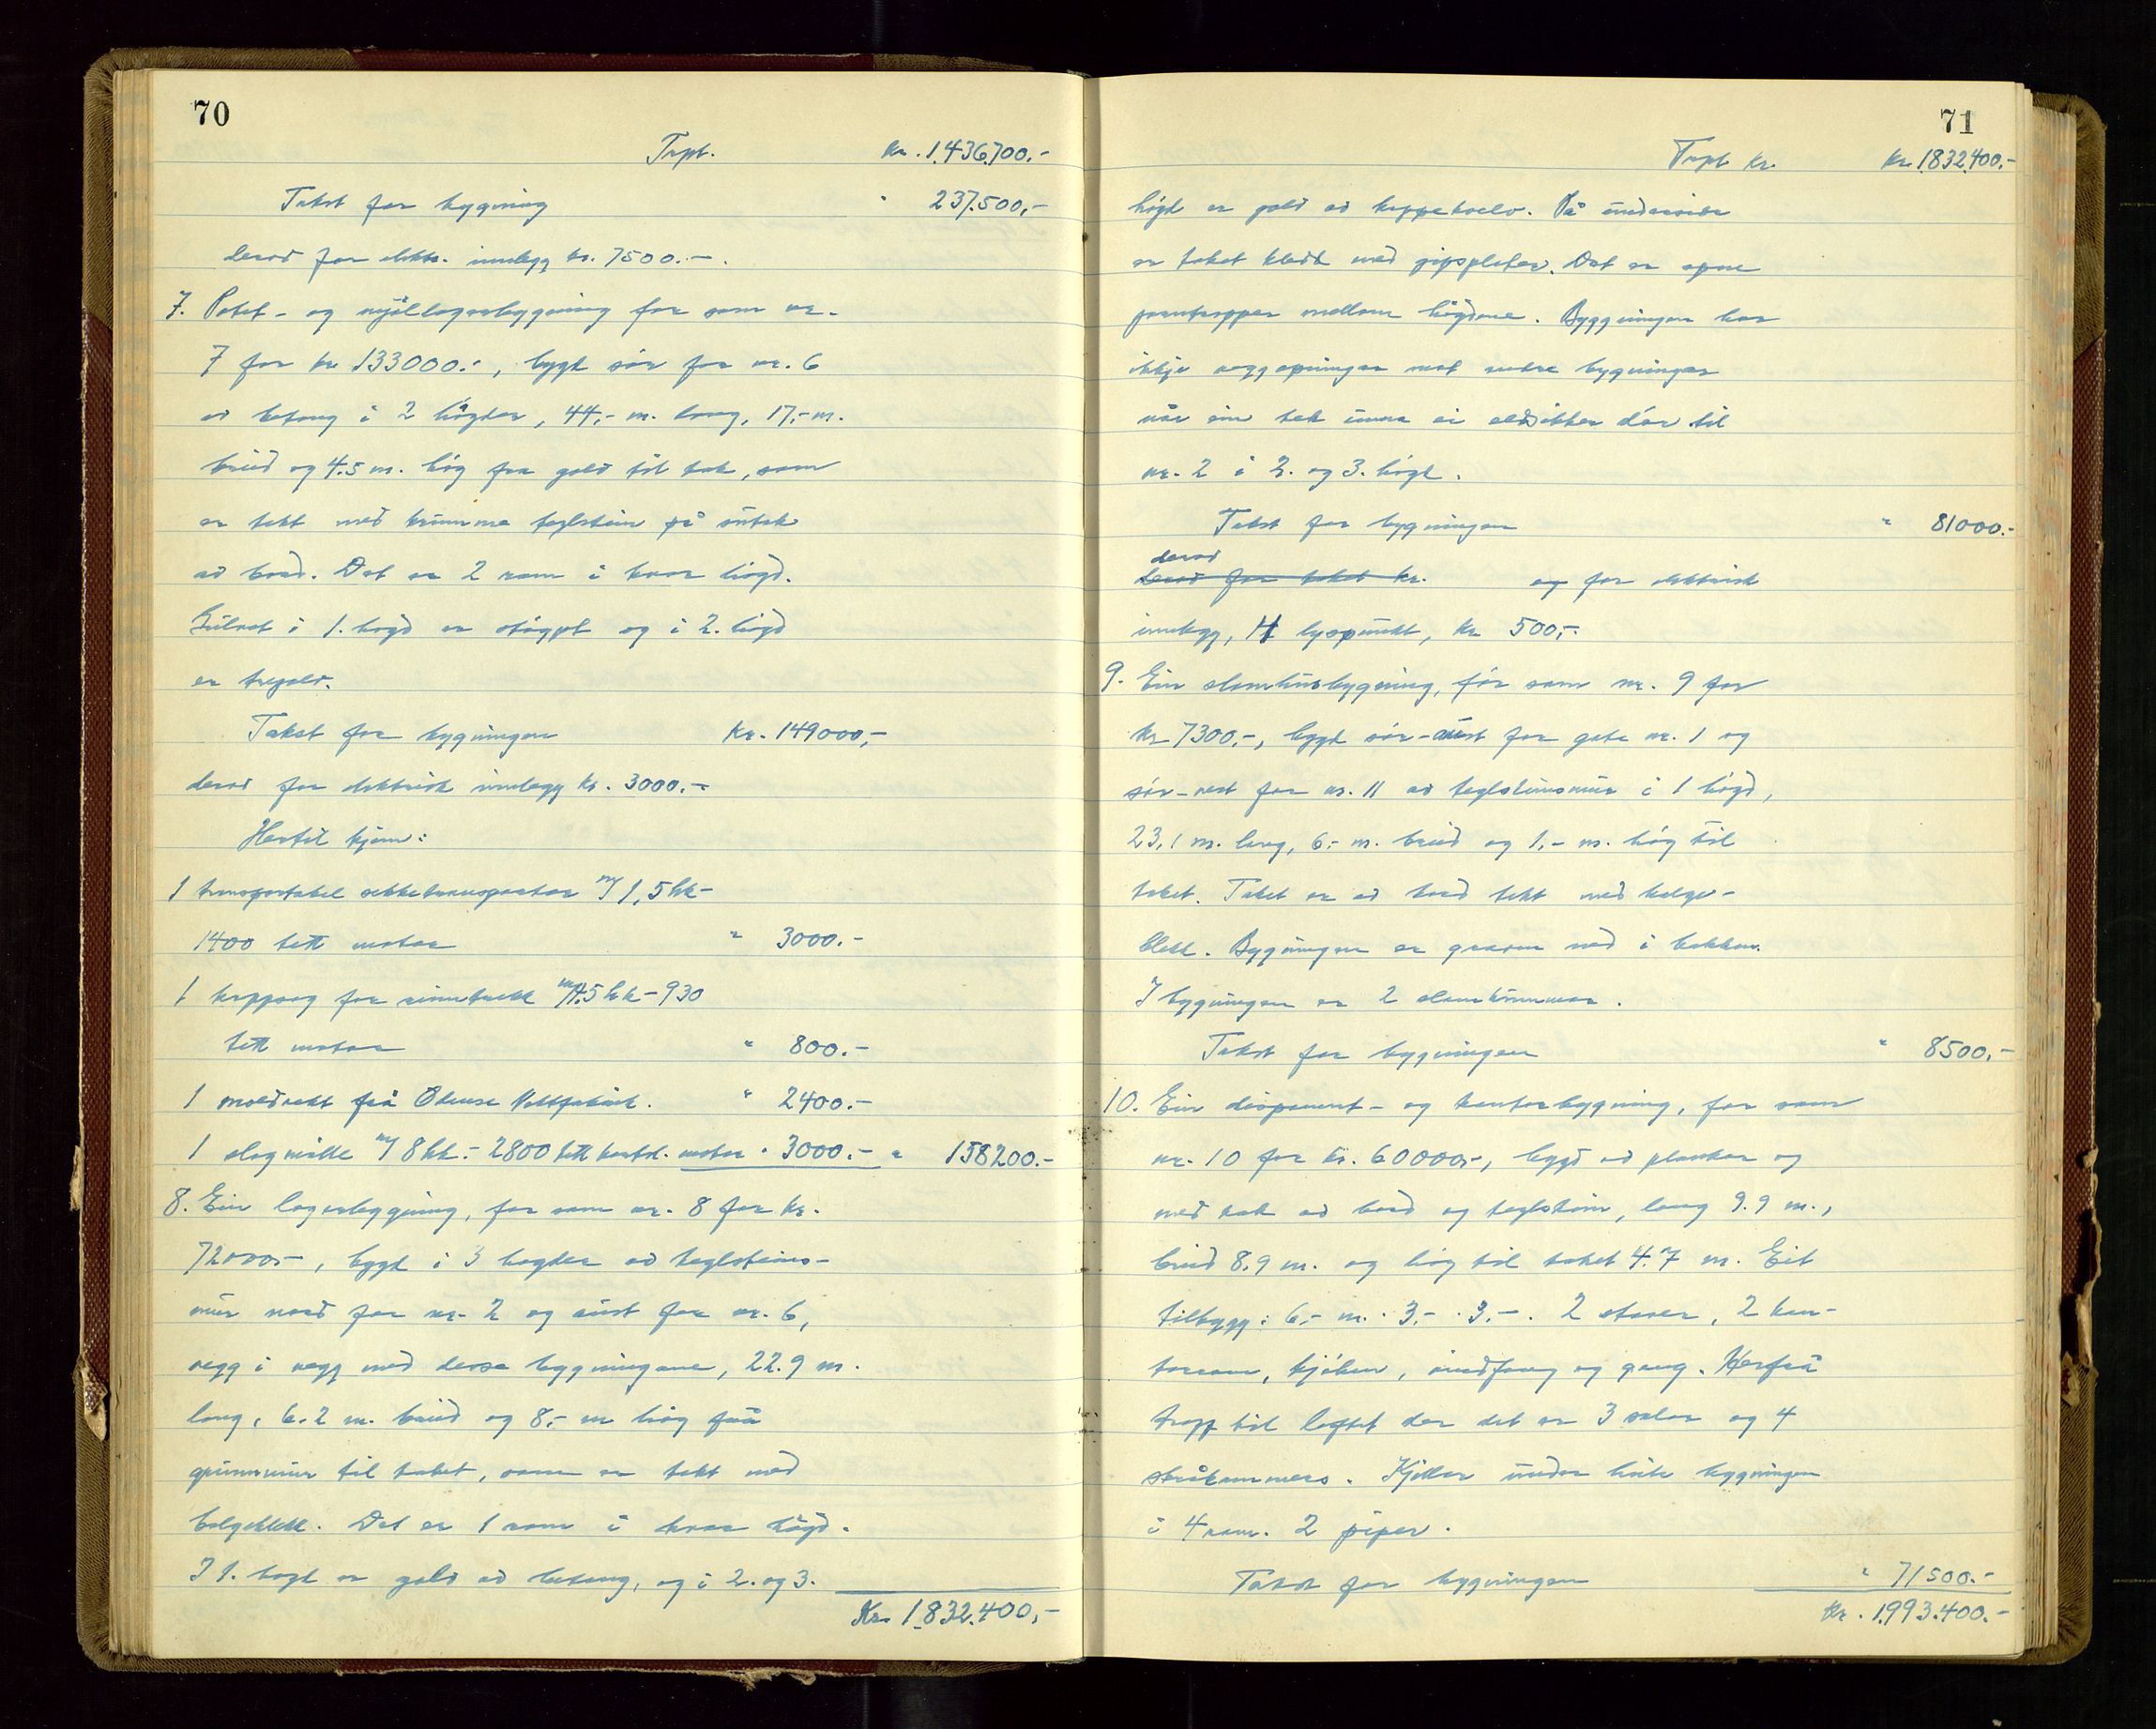 70
Trpt. kr. 1.436.700.-
Takst for bygning " 237.500,-
derav for elektr. innlegg kr. 7500.-.
7. Potet- og mjöllagerbygning før som nr.
7 for kr 133000.-, bygt sör for nr. 6
av betong i 2 högder, 44,- m. lang, 17,- m.
breid og 4.5 m. hög fra golv til tak, som
er tekt med krumme teglstein på sutak
av bord. Det er 2 rom i kvar högd.
Gulvet i 1. högd er støypt og i 2. högd
er tregolv.
Takst for bygningen kr. 149000,-
derav for elektrisk innlegg kr. 3000.-
Hertil kjem:
1 transportabel sekketransportør m/ 1,5 hk-
1400 tett motor " 3000.-
1 kappsag for vinntrekk m/ 4.5 hk - 930
tett motor " 800.-
1 moldvekt frå Odense Vektfabrik. " 2400.-
1 slagmölle m/ 8 hk.- 2800 tett kortsl. motor " 3000.- " 158200.-
8. Ein lagerbygning, før som nr. 8 for kr.
72000.-, bygt i 3 høgder av teglsteins-
mur nord for nr. 2 og aust for nr. 6,
vegg i vegg med desse bygningane, 22.9 m.
lang, 6.2 m. breid og 8,- m hög frå
grunnmur til taket, som er tekt med
bølgeblekk. Det er 1 rom i kvar högd.
I 1. høgd er golv av betong, og i 2. og 3.
Kr. 1.832.400,-
71
Trpt kr. kr. 1.832.400.-
högd er golv av kryppekvelv. På undersida
er taket kledt med gipsplater. Det er opne
jarntropper mellom högdene. Byggningen har
ikkje veggopningar mot andre bygningar
når ein tek unna ei eldsikker dör til
nr. 2 i 2. og 3. högd.
Takst for bygningen " 81000.-
derav
derav for taket kr. og for elektrisk
innlegg, 4 lyspunkt, kr 500,-.
9. Ein slamhusbygning, før som nr. 9 for
kr 7300.-, bygt sör-aust for gate nr. 1 og
sör-vest for nr. 11 av teglsteinsmur i 1 högd,
23,1 m. lang, 6,- m. breid og 1,- m. hög til
taket. Taket er av bord tekt med bølge-
blekk. Bygningen er graven ned i bakken.
I bygningen er 2 slamkummar.
Takst for bygningen " 8500,-
10. Ein disponent- og kontorbygning, før som
nr. 10 for kr. 60000.-, bygd av plankar og
med tak av bord og teglstein, lang 9.9 m.,
breid 8.9 m. og hög til taket 4.7 m. Eit
tilbygg: 6,- m. · 3,- · 3,-. 2 stover, 2 kon-
torrom, kjöken, inngang og gang. Herfrå
tropp til loftet der det er 3 salar og 4
skråkammers. Kjellar under heile bygningen
i 4 rom. 2 piper.
Takst for bygningen " 71500.-
kr. 1.993.400.-